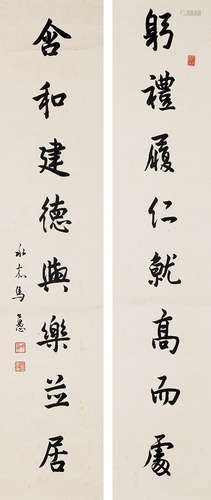 躬禮履仁就高而處
含和建德與樂並居
馬公愚